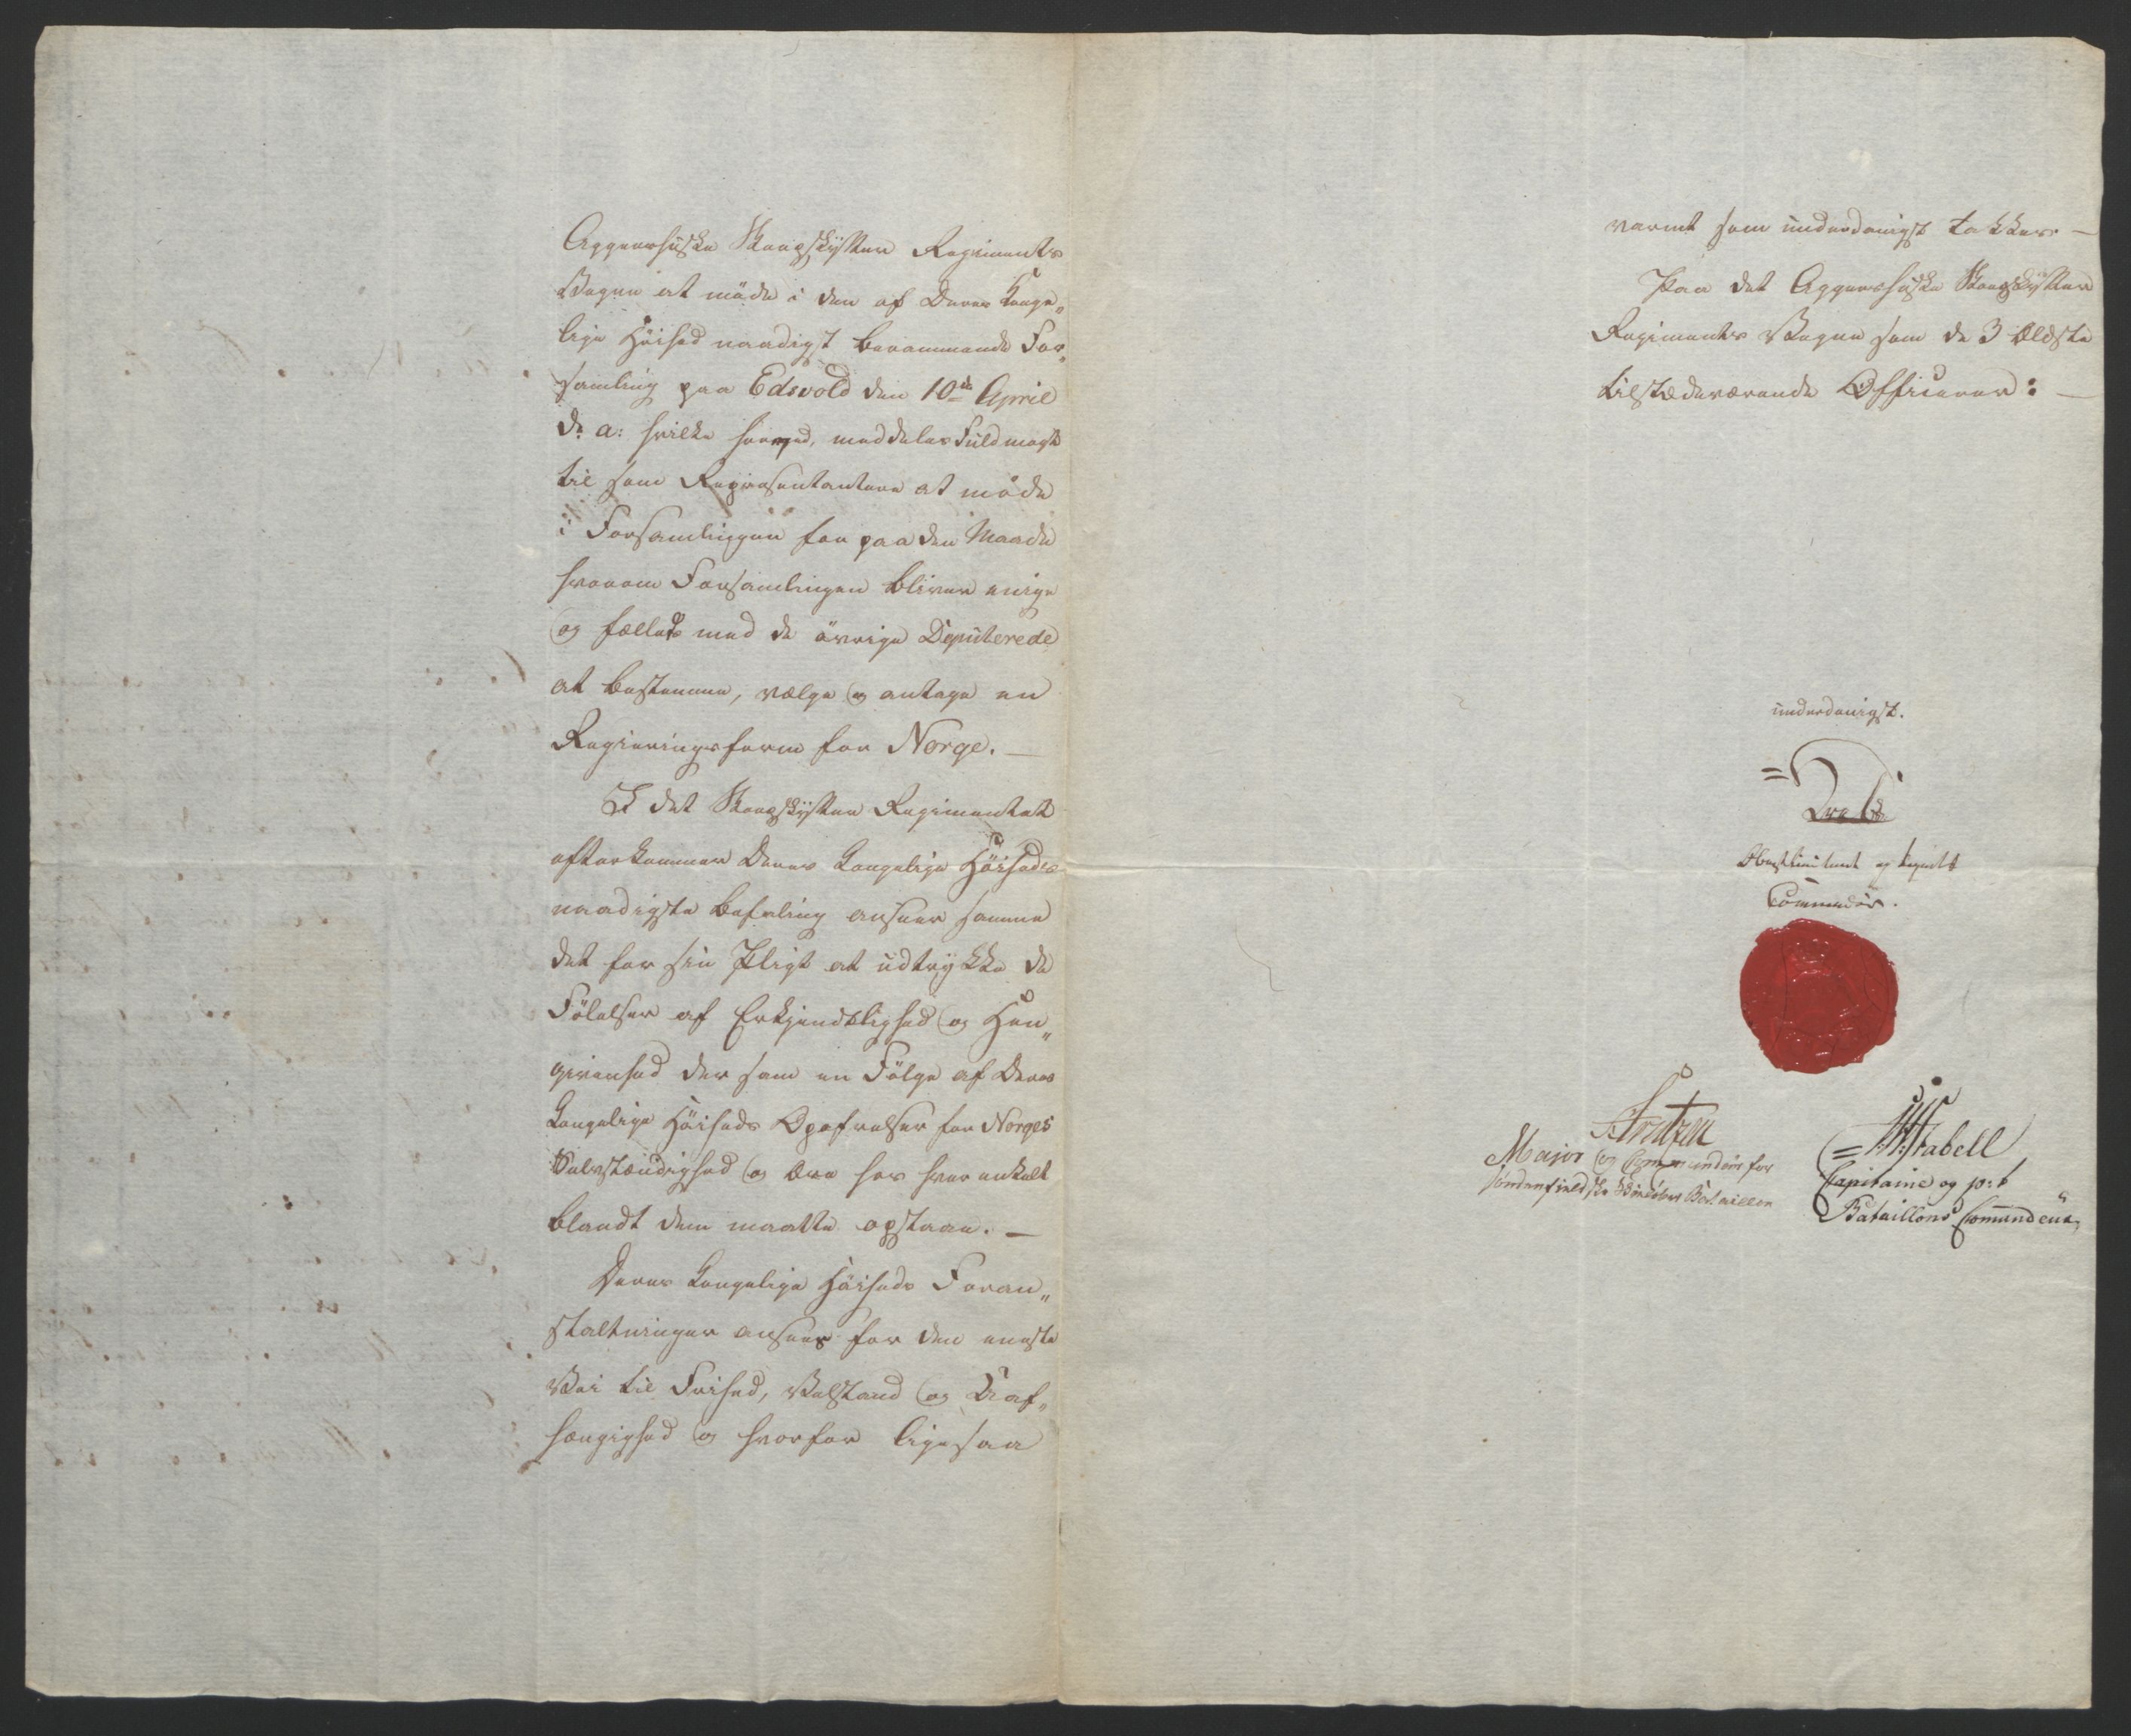 Aggershusske Skarpskytter Regiments
Vegne at möde i den af Deres Konge„
lige Höihed naadigst berammende For„
samling paa Edsvold den 10de April
d: a: hvilke hermed, meddeles Fuldmagt
til som Repræsentantere at möde
i Forsamlingen for paa den Maade
hvorom Forsamlingen bliver enige
og fælleds med de övrige Deputerede
at bestemme, vælge og antage en
Regieringsform for Norge. —
I det Skarpskytter Regimentet
efterkommer Deres Kongelige Höiheds
naadigste Befaling anseer samme
det for sin Pligt at udtrykke de
Fölelser af Erkjendtlighed og Hen„
givenhed der som en Fölge af Deres
Kongelige Höiheds Opofrelser for Norges
Selvstændighed og Ære hos hver enkelt
blandt dem maatte opstaae. —
Deres Kongelige Höiheds Foran„
staltninger ansees for den eneste
Vei til Frihed, Velstand og Uaf„
hængighed og hvorfor ligesaa
varmt som underdanigst takkes —
Paa det Aggershusske Skarpskytter
Regiments Vegne som de 3 Ældste
tilstædeværende Officerer: —
underdanigst.
Obrstlieutenant og Regimts
Commandör.
Fritzen
Major og Commandeur for
söndenfieldske Bataillon
Stabell
Capitaine og p:t
Bataillons Commandeur,